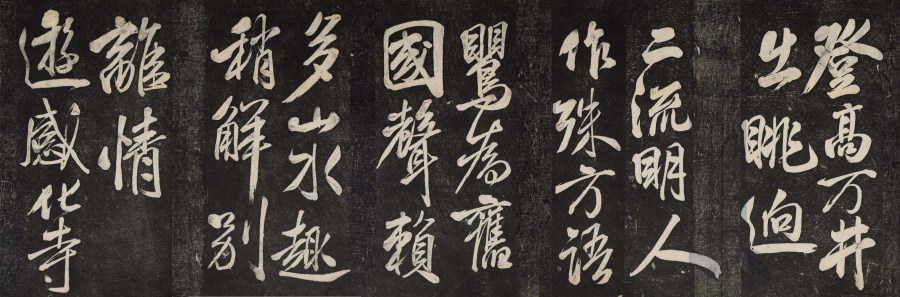 登高万井
出眺逈
二流明人
作殊方語
鸎為舊
國聲賴
多山水趣
稍解别
離情
遊感化寺